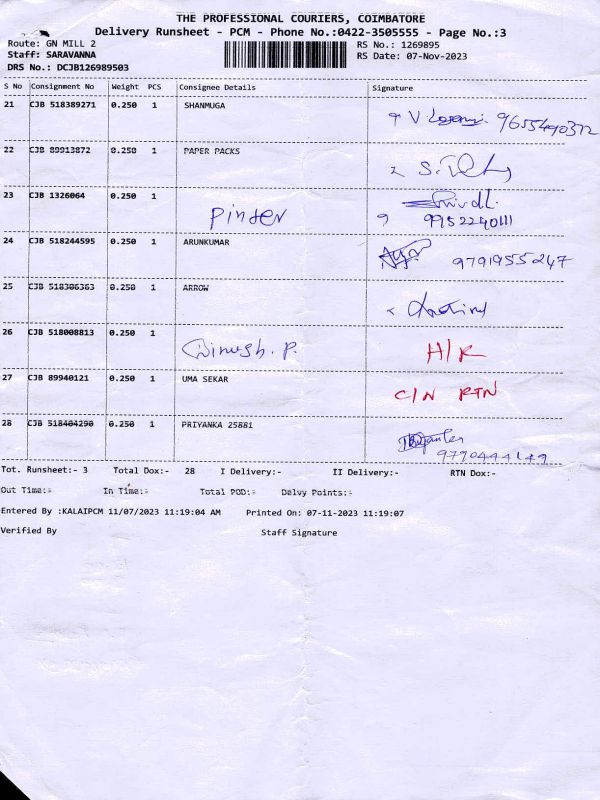 THE PROFESSIONAL COURIERS, COIMBATORE
Delivery Runsheet - PCM - Phone No.:0422-3505555 - Page No.:3
Route: GN MILL 2 RS No.: 1269895
Staff: SARAVANNA RS Date: 07-Nov-2023
DRS No.: DCJB126989503
S No Consignment No Weight PCS Consignee Details Signature
21 CJB 518389271 0.250 1 SHANMUGA
9655490372
22 CJB 89913872 0.250 1 PAPER PACKS
23 CJB 1326064 0.250 1
Pinter 9952240111
24 CJB 518244595 0.250 1 ARUNKUMAR
9791955247
25 CJB 518306363 0.250 1 ARROW
26 CJB 518008813 0.250 1
Dinesh. P. H/K
27 CJB 89940121 0.250 1 UMA SEKAR
C/N RTN
28 CJB 518404290 0.250 1 PRIYANKA 25881
Tot. Runsheet:- 3 Total Dox:- 28 I Delivery:- II Delivery:- RTN Dox:-
Out Time:- In Time:- Total POD:- Delvy Points:-
Entered By :KALAIPCM 11/07/2023 11:19:04 AM Printed On: 07-11-2023 11:19:07
Verified By Staff Signature